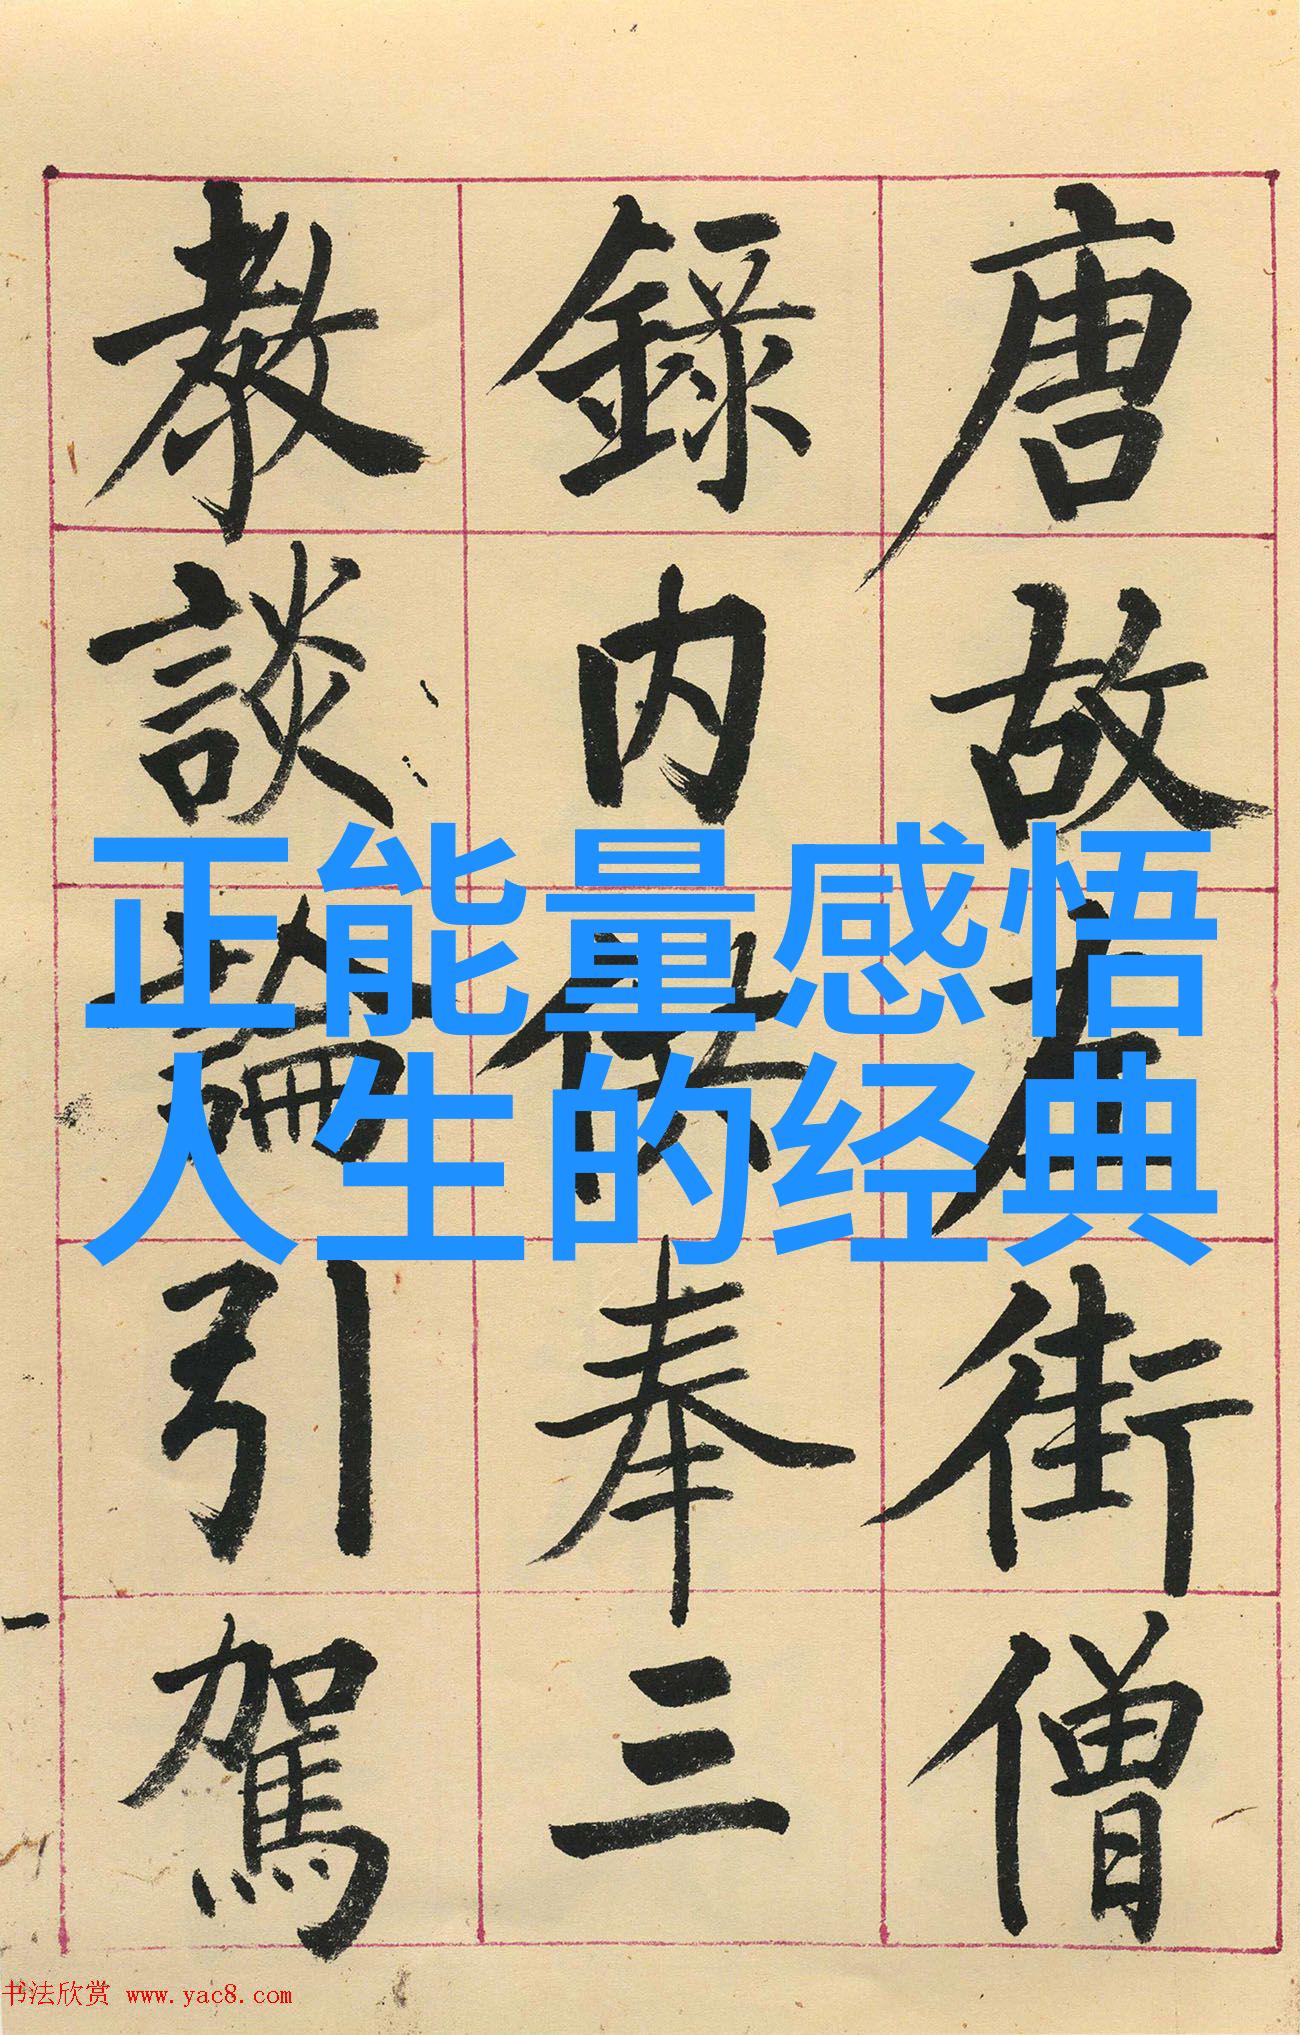 唐故左街僧
錄内供奉三
教談論引駕
正能量感悟
人生的经典
书法欣赏 www.yac8.com